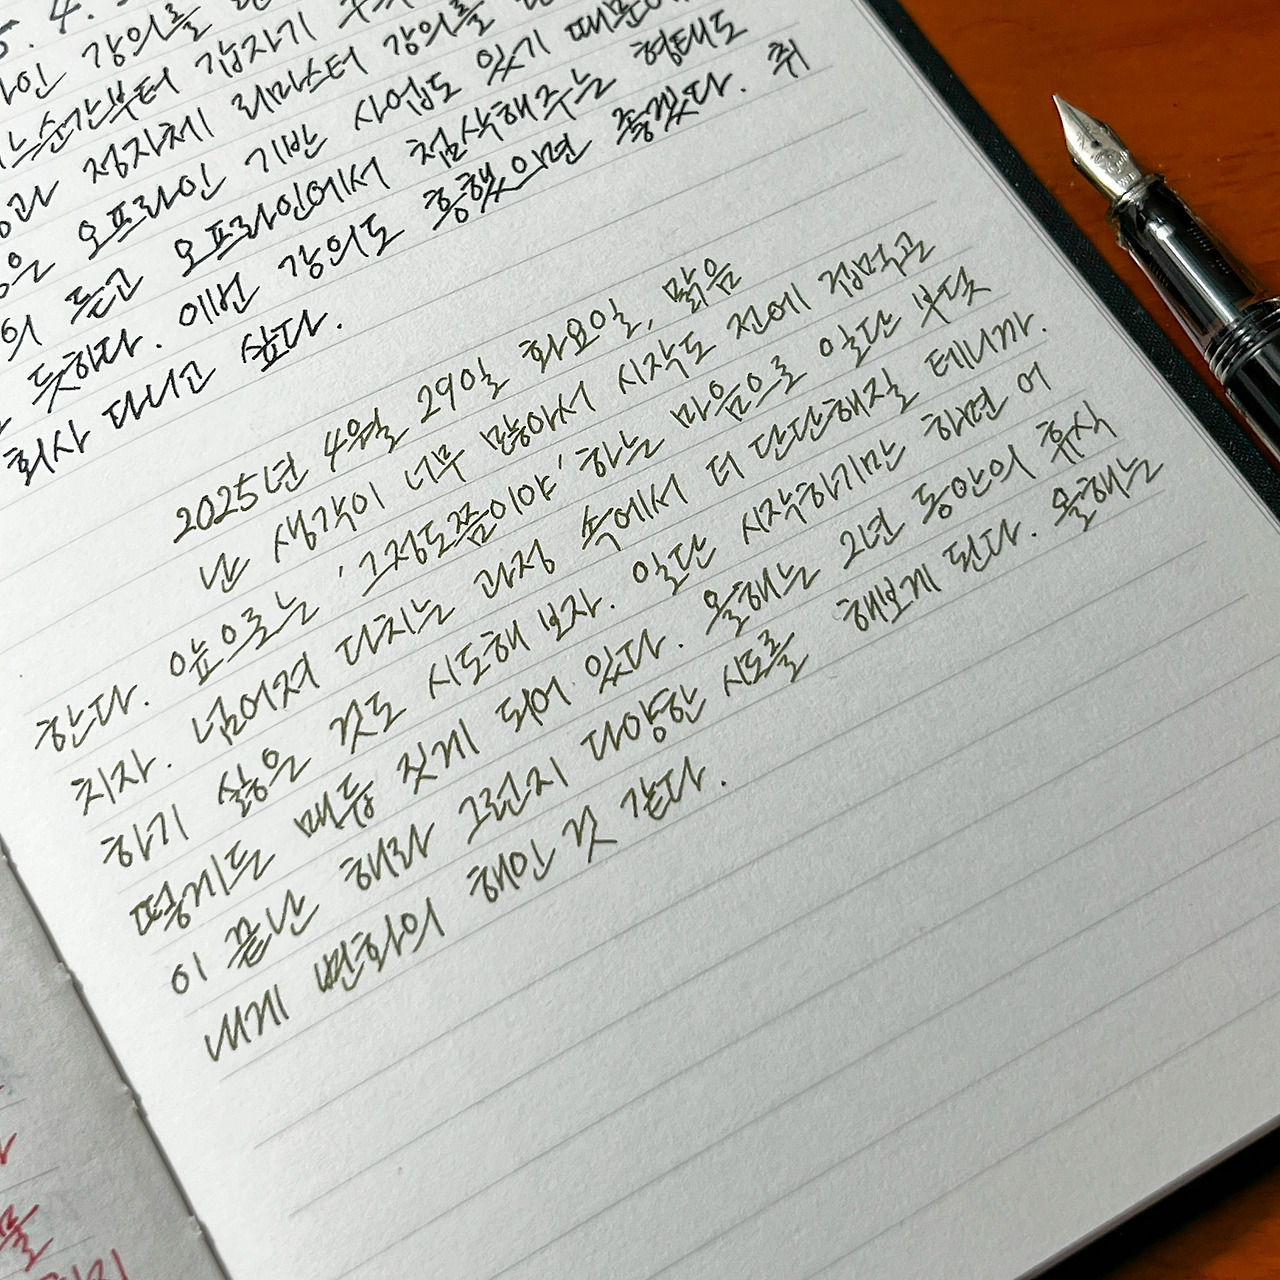 5. 4.
강의를
순간부터 갑자기
정자체 리마스터 강의를
오프라인 기반 사업도 있기 때문에
의 듣고 오프라인에서 첨삭해주는 형태도
듯하다. 이번 강의도 흥했으면 좋겠다. 취
회사 다니고 싶다.
2025년 4월 29일 화요일, 맑음
난 생각이 너무 많아서 시작도 전에 겁먹곤
한다. 앞으로는 '그정도쯤이야' 하는 마음으로 일단 부딪
치자. 넘어져 다치는 과정 속에서 더 단단해질 테니까.
하기 싫은 것도 시도해 보자. 일단 시작하기만 하면 어
떻게든 매듭 짓게 되어 있다. 올해는 2년 동안의 휴식
이 끝난 해라 그런지 다양한 시도를 해보게 된다. 올해는
내게 변화의 해인 것 같다.